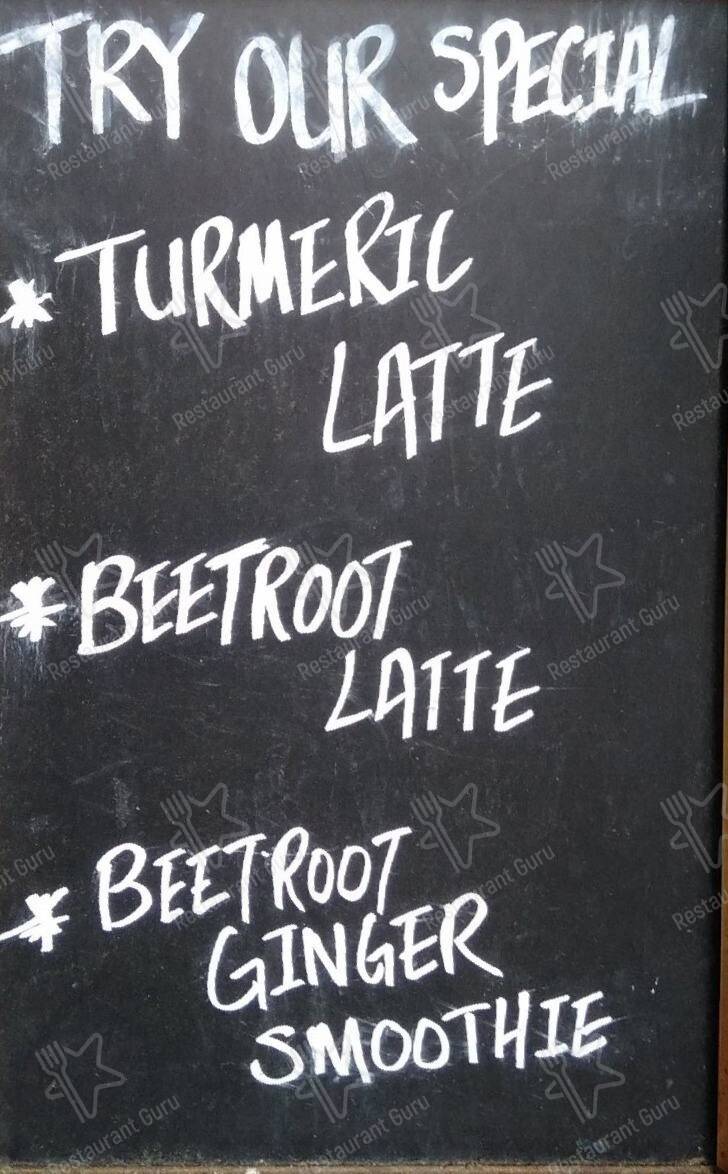 TRY OUR SPECIAL
* TURMERIC
LATTE
* BEETROOT
LATTE
* BEETROOT
GINGER
SMOOTHIE
Restaurant Guru